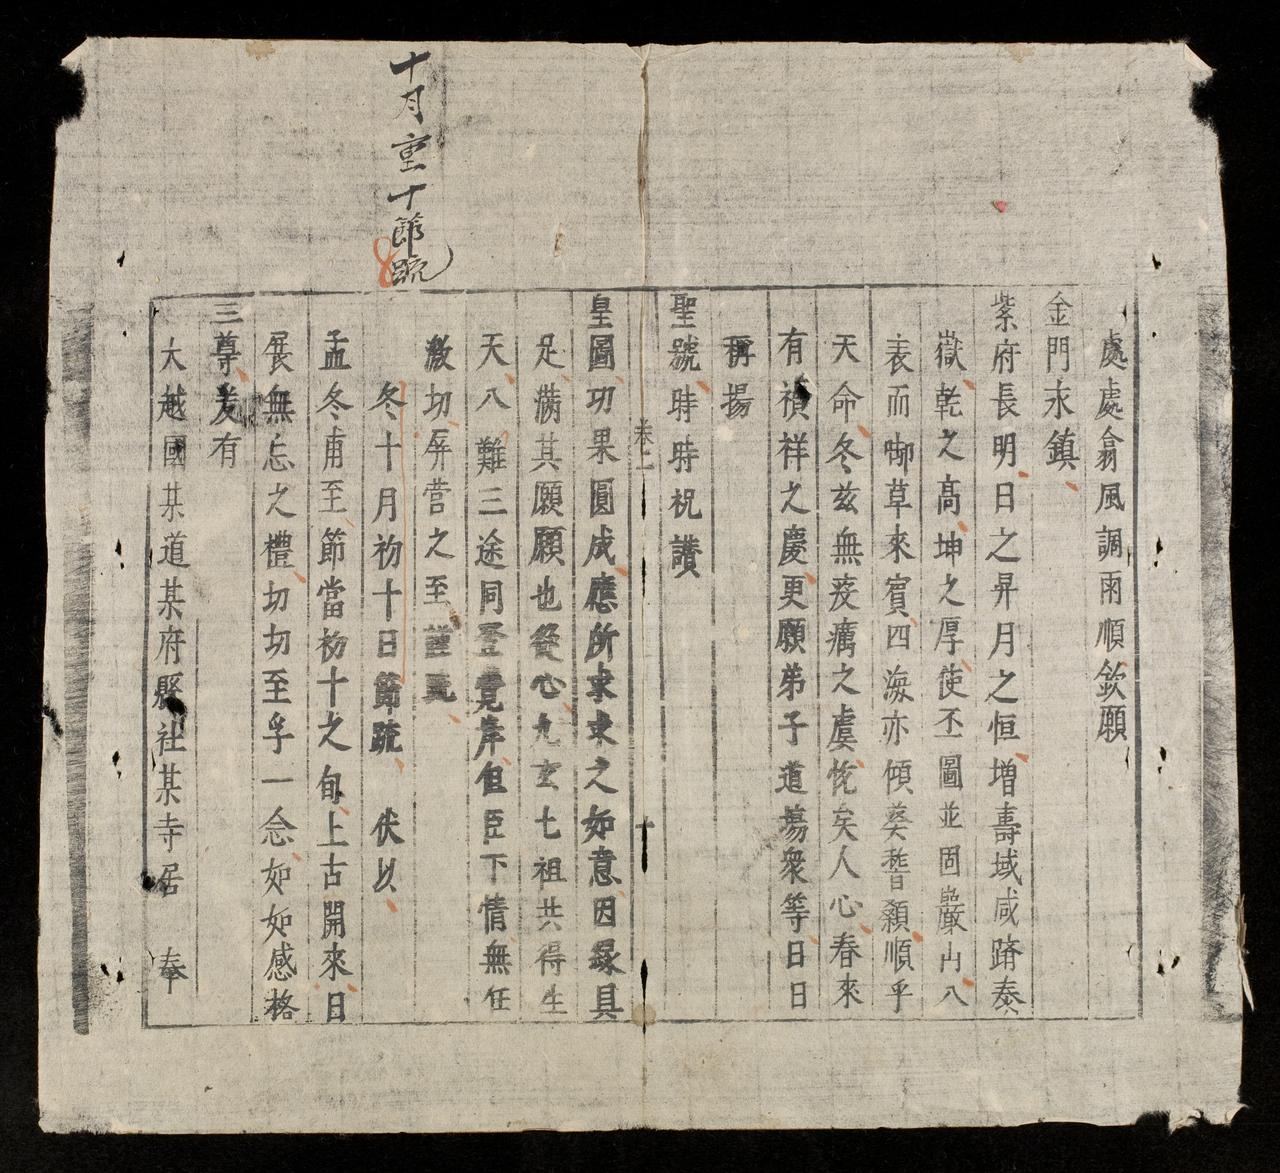 十月重十節疏
8
處處翕風調雨順欽願
金門永鎮
紫府長明日之昇月之恒增壽域咸躋泰
嶽乾之高坤之厚使丕圖並固巖山八
表而啣草來賓四海亦傾葵稽顙順乎
天命冬茲無疫癘之虞恍矣人心春來
有禎祥之慶更願弟子道塲衆等日日
稱揚
聖號時時祝讚
卷二
十
皇圖功果圓成應所求求之如意因緣具
足滿其願願也發心九玄七祖共得生
天八難三途同登覺岸但臣下情無任
激切屏營之至謹疏
冬十月初十日節疏 伏以
孟冬甫至節當初十之旬上古開來日
展無忘之禮切切至孚一念如如感格
三尊爰有
大越國某道某府縣社某寺居 奉